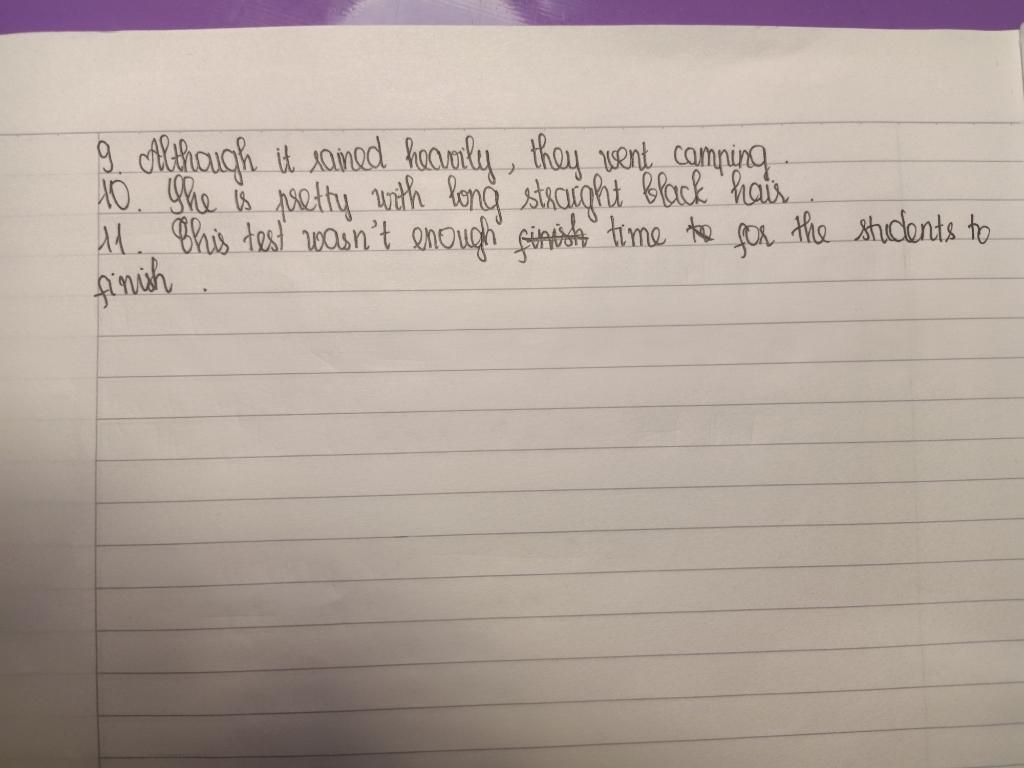 9. Although it rained heavily, they went camping.
10. She is pretty with long straight black hair.
11. This test wasn't enough finish time to for the students to
finish.